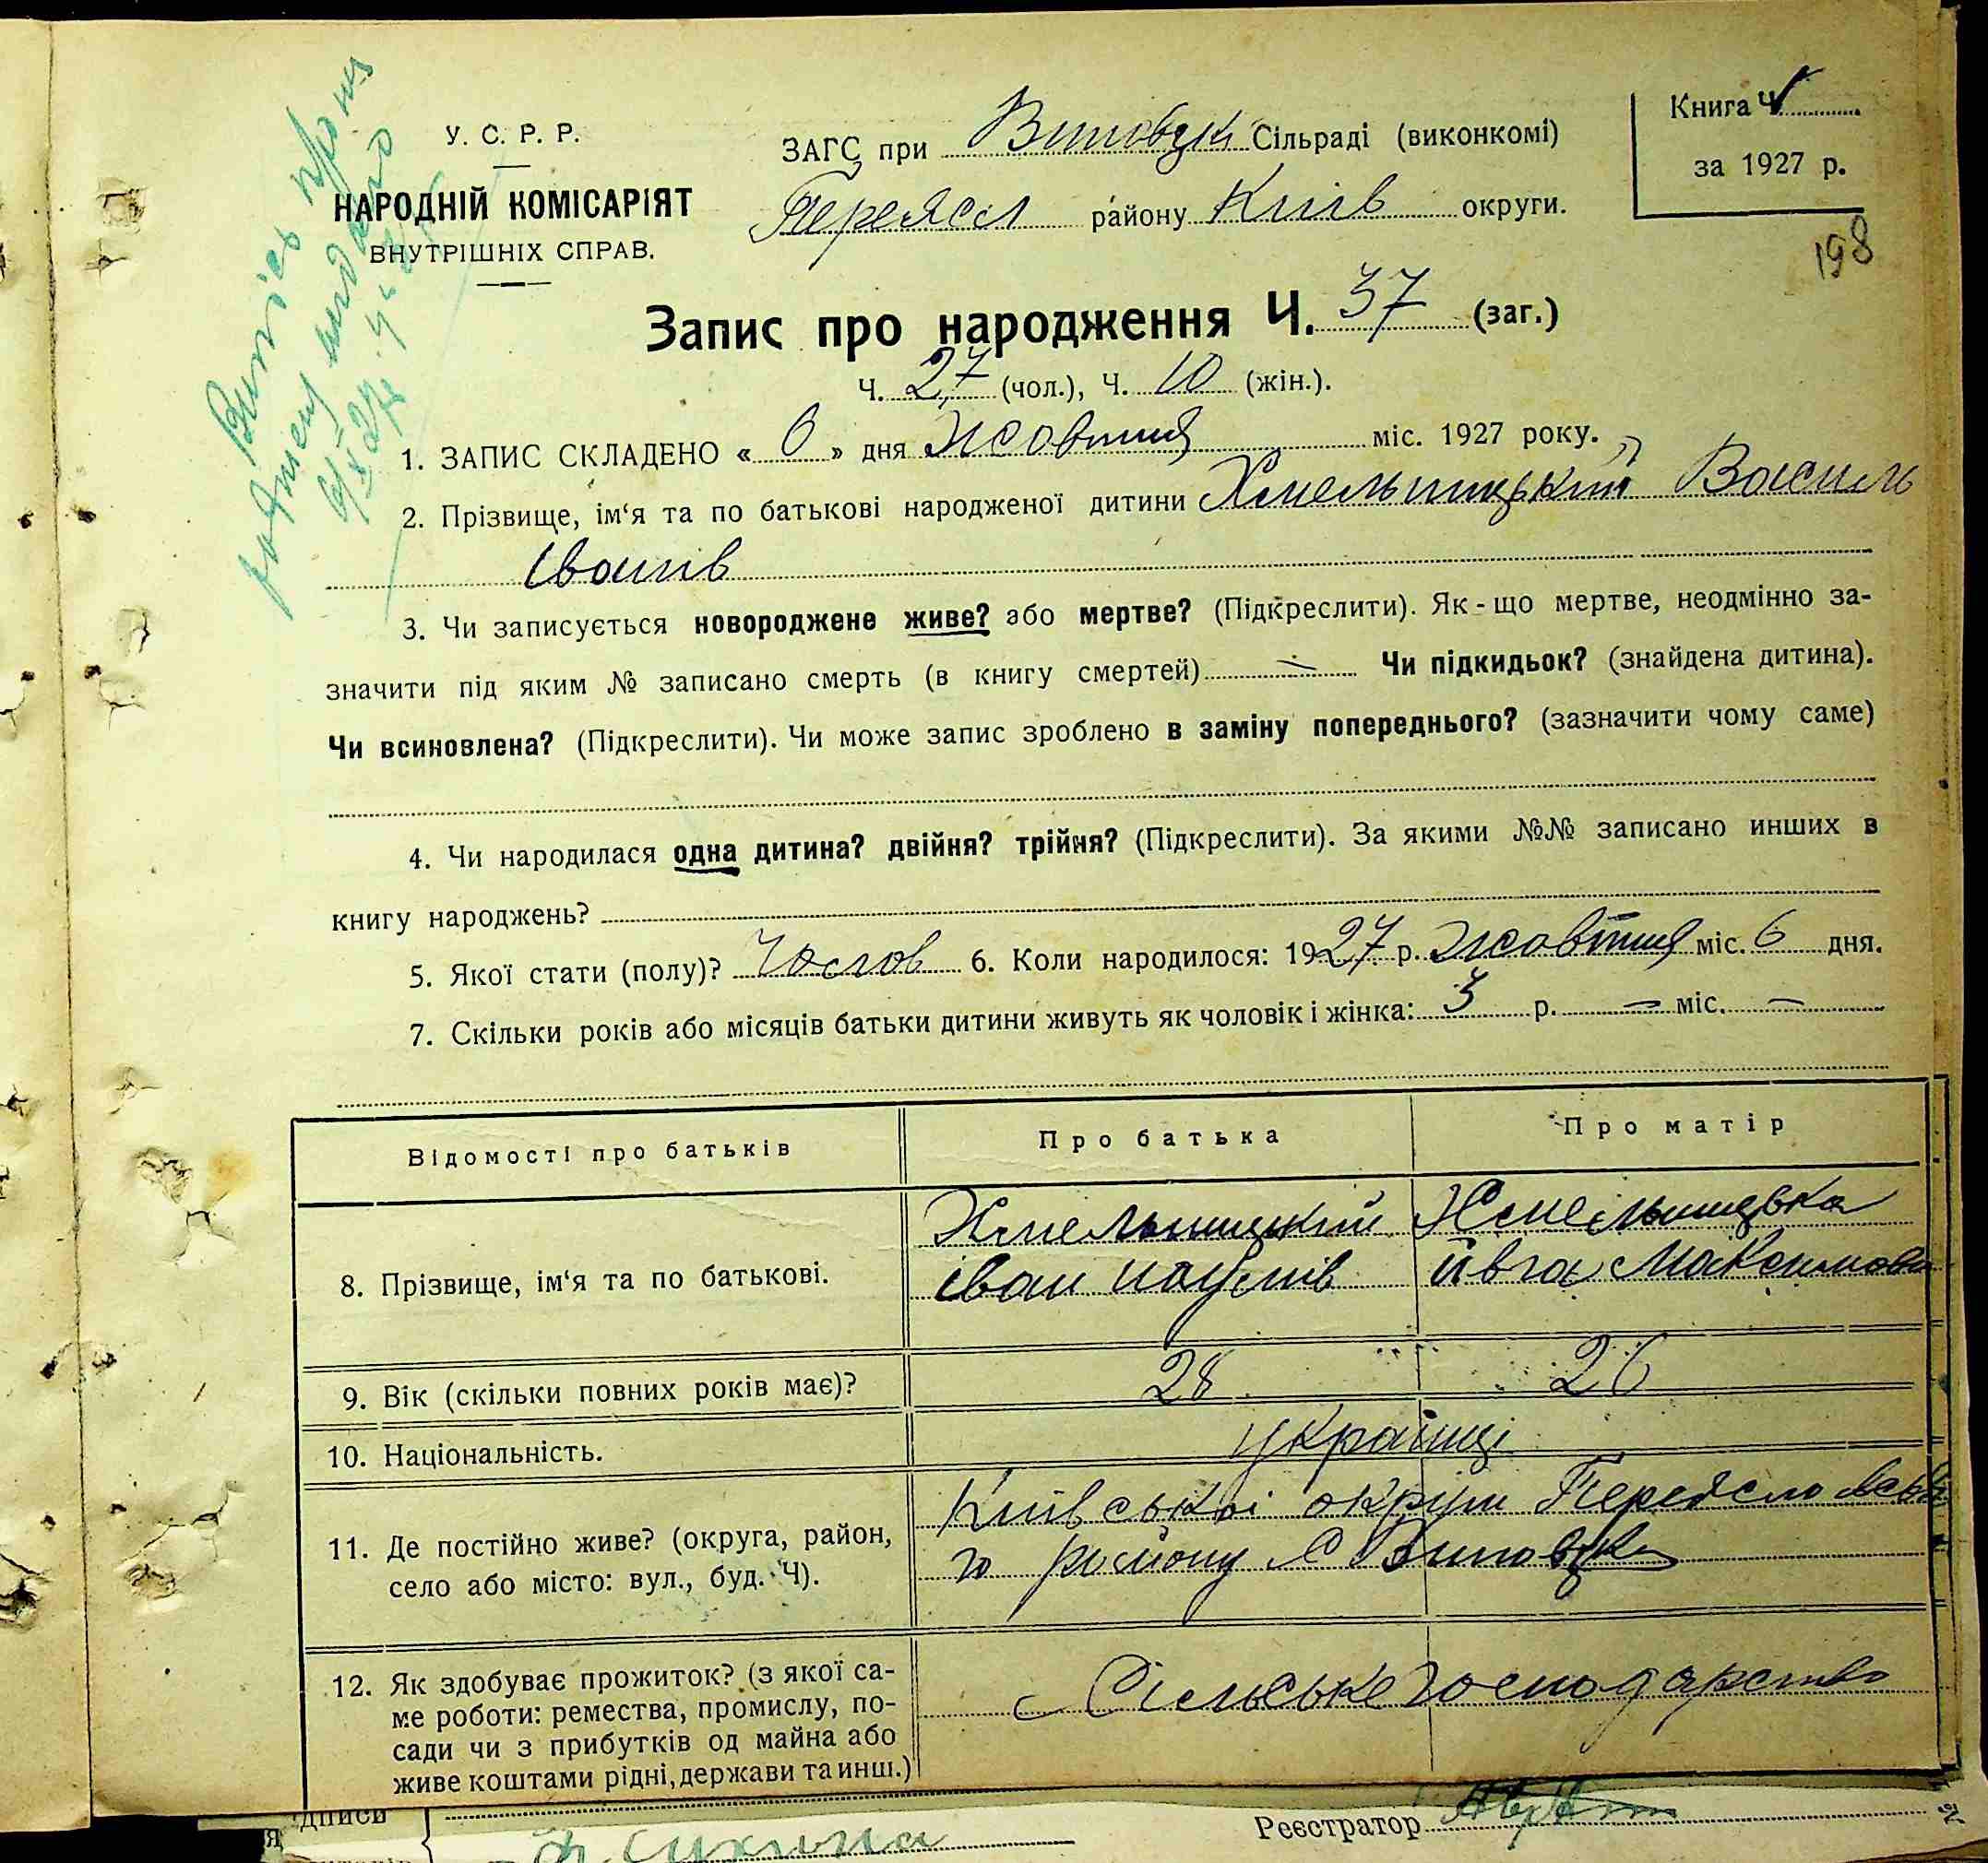 У. С. Р. Р.
НАРОДНІЙ КОМІСАРІЯТ
ВНУТРІШНІХ СПРАВ.
ЗАГС при Сільраді (виконкомі)
Переясл району Київ округи.
Книга Ч
за 1927 р.
198
Запис про народження Ч. 37 (заг.)
Ч. 27 (чол.), Ч. 10 (жін.).
1. ЗАПИС СКЛАДЕНО « » дня жовтня міс. 1927 року.
2. Прізвище, ім‘я та по батькові народженої дитини Хмельницький Василь
Іванів
3. Чи записується новороджене живе? або мертве? (Підкреслити). Як - що мертве, неодмінно за-
значити під яким № записано смерть (в книгу смертей) — Чи підкидьок? (знайдена дитина).
Чи всиновлена? (Підкреслити). Чи може запис зроблено в заміну попереднього? (зазначити чому саме)
4. Чи народилася одна дитина? двійня? трійня? (Підкреслити). За якими №№ записано инших в
книгу народжень?
5. Якої стати (полу)? Чолов 6. Коли народилося: 1927 р. жовтня міс. 6 дня.
7. Скільки років або місяців батьки дитини живуть як чоловік і жінка: 3 р. — міс. —
Відомості про батьків Про батька Про матір
8. Прізвище, ім‘я та по батькові. Хмельницький Хмельницька
Іван Наумів Ивга Максимова
9. Вік (скільки повних років має)? 28 26
10. Національність. українці
11. Де постійно живе? (округа, район,
село або місто: вул., буд. Ч).
Київської округи Переяславсько
го району с
12. Як здобуває прожиток? (з якої са-
ме роботи: ремества, промислу, по-
сади чи з прибутків од майна або
живе коштами рідні, держави та инш.)
Сільське господарство
дписи
Реєстратор